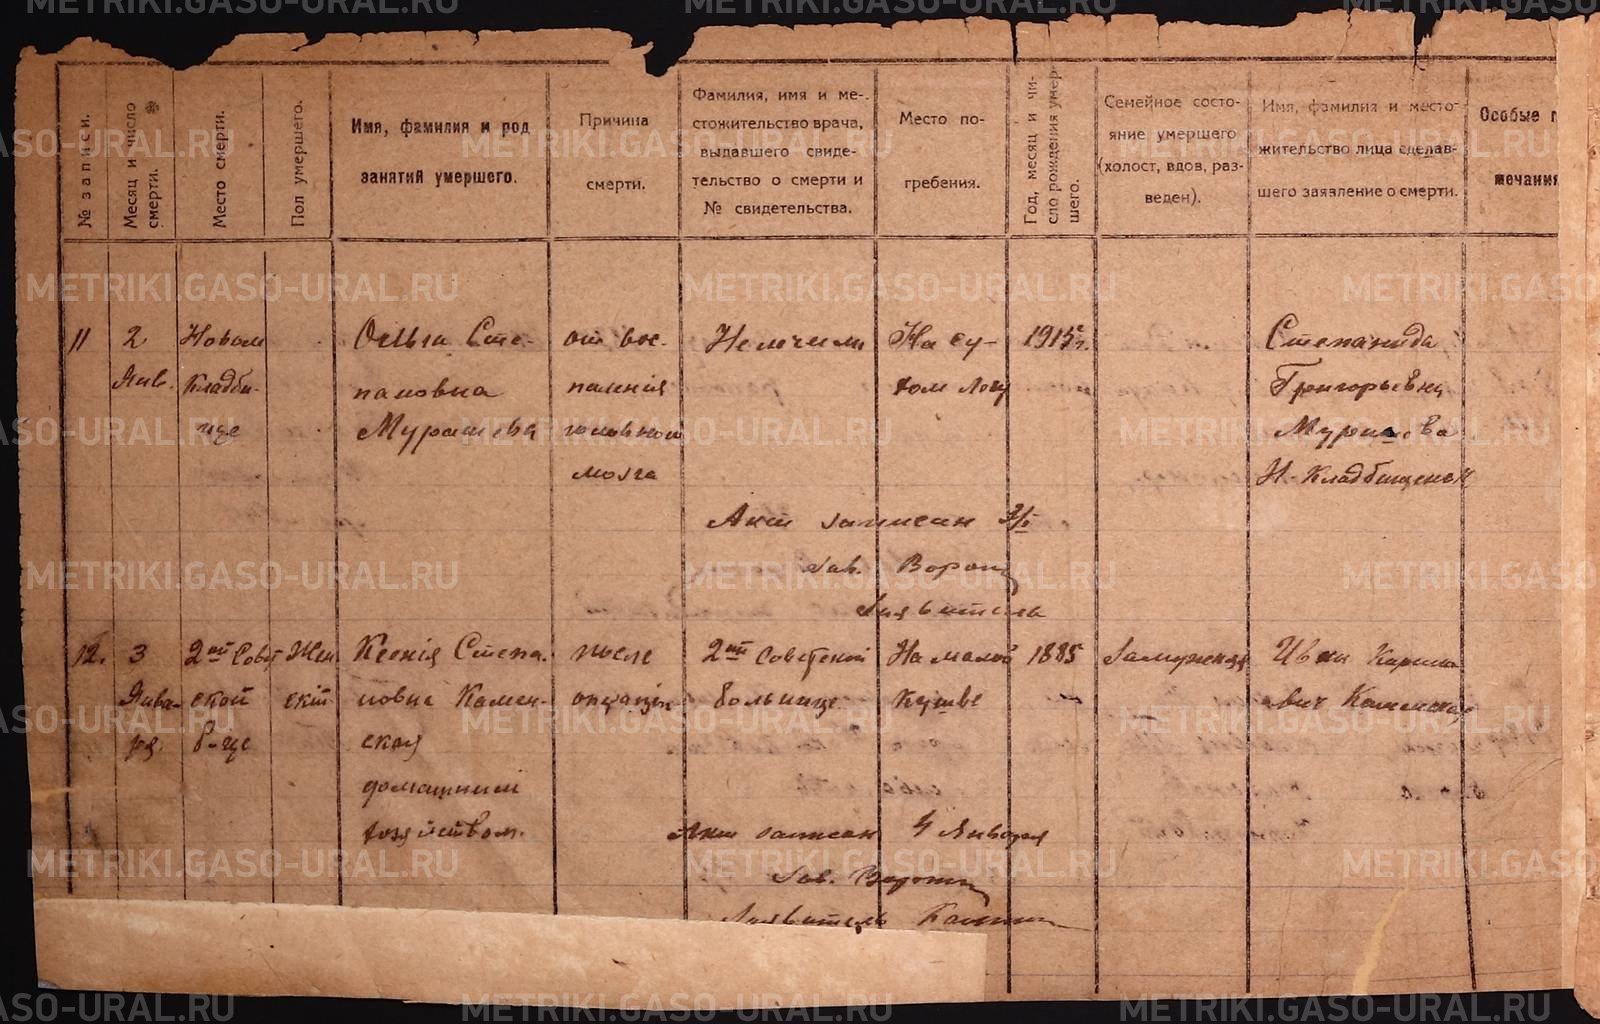 № записи.
Месяц и число смерти.
Место смерти.
Пол умершего.
Имя, фамилия и род
занятий умершего.
Причина
смерти.
Фамилия, имя и ме-
стожительство врача,
выдавшего свиде-
тельство о смерти и
№ свидетельства.
Место по-
гребения.
Год, месяц и чи-
сло рождения умер-
шего.
Семейное состо-
яние умершего
(холост, вдов, раз-
веден).
Имя, фамилия и место-
жительство лица сделав-
шего заявление о смерти.
Особые п
мечания
11
2
Янв.
Новом
Кладби-
ще
Ольга Сте-
пановна
Мурашева
от вос-
паления
головного
мозга
Нелечили
На су-
хом логу
1915г.
Степанида
Григорьевна
Мурашова
Н-Кладбищенск
Акт записан 3/I
Зав. Ворон
Заявитель
12.
3
Янва-
ря.
2ой Совет
ской
б-це
Жен
ский
Ксения Степа-
новна Камен-
ская
домашним
хозяйством.
после
операции
2ой Советской
больнице
На малой
кушве
1885
Замужняя
Иван
ович Каменская
Акт записан 4 Января
Зав. Ворон
Заявитель
METRIKI.GASO-URAL.RU